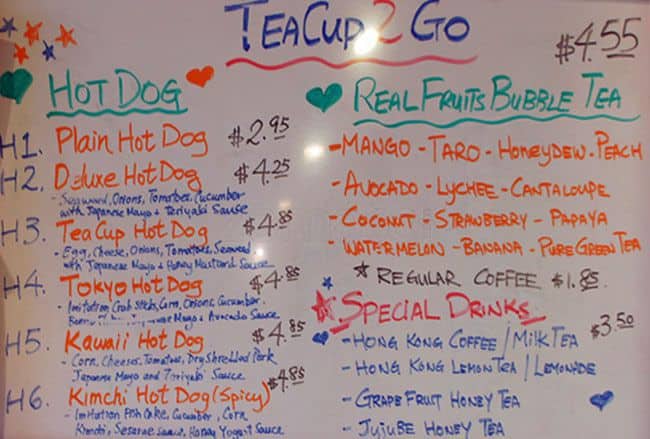 TEACUP 2 GO
$4.55
HOT DOG
H1. Plain Hot Dog $2.95
H2. Deluxe Hot Dog $4.25
- Seaweed, Onions, Tomatoes, Cucumber
with Japanese Mayo & Teriyaki Sauce
H3. Tea Cup Hot Dog $4.85
- Egg, Cheese, Onions, Tomatoes, Seaweed
with Japanese Mayo & Honey Mustard Sauce
H4. Tokyo Hot Dog $4.85
- Imitation Crab Sticks, Corn, Onions, Cucumber
Mayo & Avocado Sauce
H5. Kawaii Hot Dog $4.85
- Corn, Cheese, Tomatoes, Dry Shredded Pork
Japanese Mayo and Teriyaki Sauce
H6. Kimchi Hot Dog (Spicy) $4.85
- Imitation Fish Cake, Cucumber, Corn
Kimchi, Sesame Sauce, Honey Yogurt Sauce
REAL FRUITS BUBBLE TEA
- MANGO - TARO - HONEYDEW - PEACH
- AVOCADO - LYCHEE - CANTALOUPE
- COCONUT - STRAWBERRY - PAPAYA
- WATERMELON - BANANA - PURE GREEN TEA
REGULAR COFFEE $1.85
SPECIAL DRINKS $3.50
- HONG KONG COFFEE / MILK TEA
- HONG KONG LEMON TEA / LEMONADE
- GRAPE FRUIT HONEY TEA
- JUJUBE HONEY TEA